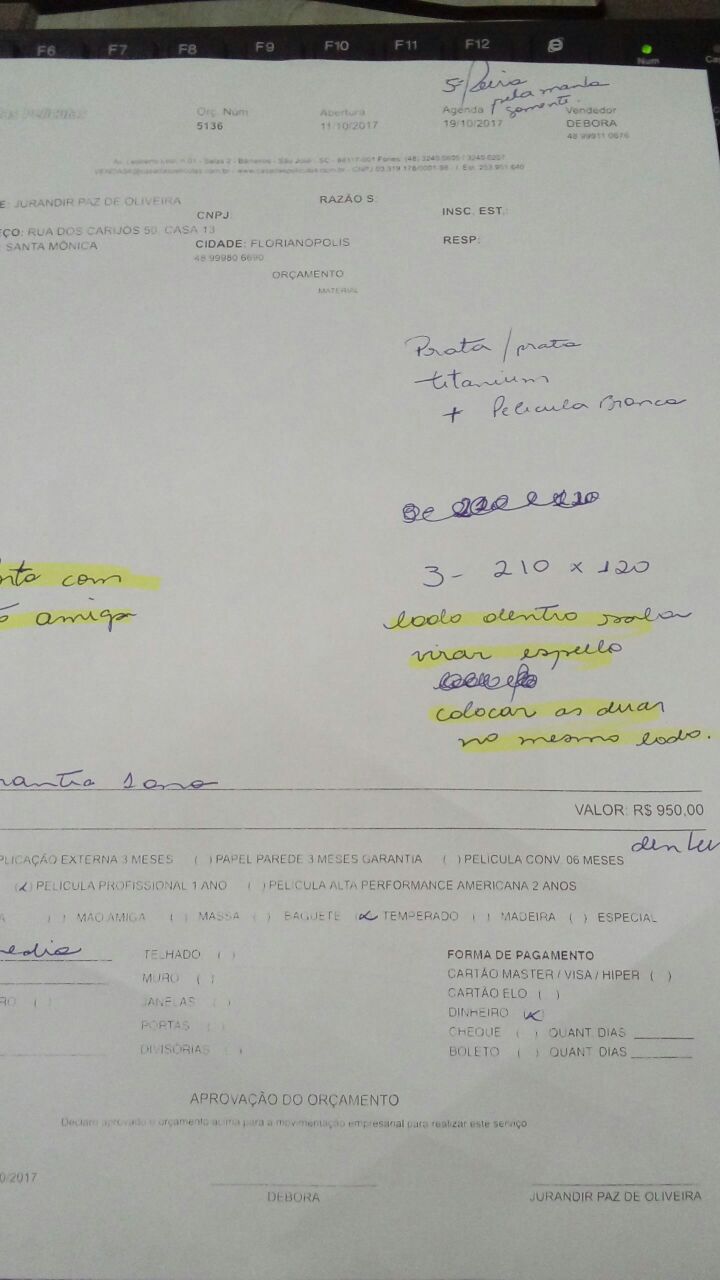 F6 F7 F8 F9 F10 F11 F12
Num
5ª feira
pela manhã
somente.
Orç. Núm Abertura Agenda Vendedor
5136 11/10/2017 19/10/2017 DEBORA
48 99911 0676
E: JURANDIR PAZ DE OLIVEIRA RAZÃO S:
CNPJ: INSC. EST.:
ÇO: RUA DOS CARIJÓS 50, CASA 13
SANTA MÔNICA CIDADE: FLORIANÓPOLIS RESP:
48 99980 6690
ORÇAMENTO
MATERIAL
Prata / prata
titanium
+ Película Branca
3 - 210 x 120
nto com lado dentro sala
amiga virar espelho
colocar as duas
no mesmo lado.
rantia 1 ano
VALOR: R$ 950,00
PLICAÇÃO EXTERNA 3 MESES ( ) PAPEL PAREDE 3 MESES GARANTIA ( ) PELICULA CONV. 06 MESES
(x) PELICULA PROFISSIONAL 1 ANO ( ) PELICULA ALTA PERFORMANCE AMERICANA 2 ANOS
A ( ) MAO AMIGA ( ) MASSA ( ) BAGUETE (x) TEMPERADO ( ) MADEIRA ( ) ESPECIAL
edio TELHADO ( ) FORMA DE PAGAMENTO
MURO ( ) CARTÃO MASTER / VISA / HIPER ( )
RO ( ) JANELAS ( ) CARTÃO ELO ( )
PORTAS ( ) DINHEIRO (x)
DIVISORIAS ( ) CHEQUE ( ) QUANT. DIAS
BOLETO ( ) QUANT. DIAS
APROVAÇÃO DO ORÇAMENTO
Declaro aprovado o orçamento acima para a movimentação empresarial para realizar este serviço
0/2017
DEBORA JURANDIR PAZ DE OLIVEIRA